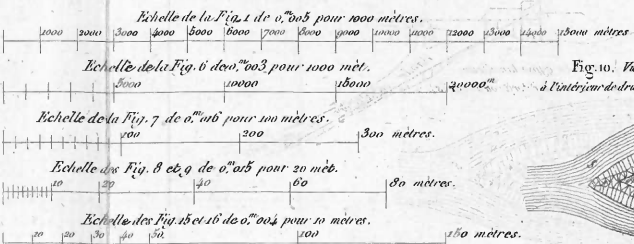 Echelle de la Fig. 1 de 0,ᵐ005 pour 1000 mètres.
1000 2000 3000 4000 5000 6000 7000 8000 9000 10000 11000 12000 13000 14000 15000 mètres
Echelle de la Fig. 6 de 0,ᵐ003 pour 1000 mèt.
5000 10000 15000 20000ᵐ
Fig. 10.
à l'intérieur de
Echelle de la Fig. 7 de 0,ᵐ016 pour 100 mètres.
100 200 300 mètres.
Echelle des Fig. 8 et 9 de 0,ᵐ015 pour 20 mèt.
10 20 40 60 80 mètres.
Echelle des Fig. 15 et 16 de 0,ᵐ004 pour 10 mètres.
10 20 30 40 50 100 150 mètres.